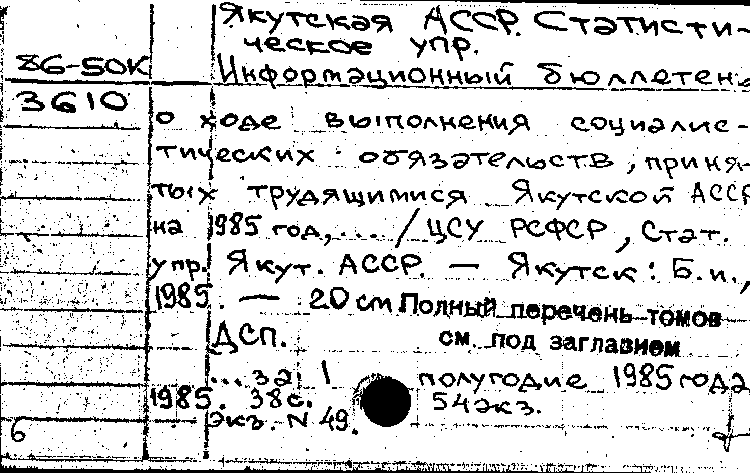 Якутская АССР. Статисти-
ческое упр.
86-50К
Информационный бюллетень
3610
о ходе выполнения социалис-
тических обязательств, приня-
тых трудящимися Якутской АССР
на 1985 год,... / ЦСУ РСФСР, Стат.
упр. Якут. АССР. — Якутск: Б.и.,
1985. — 20 см Полный перечень томов
см. под заглавием
ДСП.
...за 1 полугодие 1985 года
1985. 38с. 54экз.
экз. N 49.
6